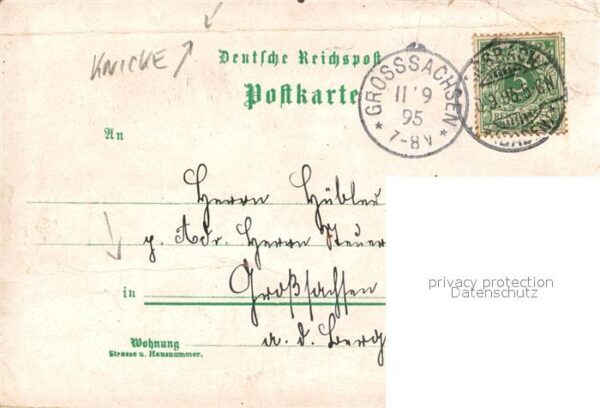 KNICKE
Deutsche Reichspost
Postkarte
GROSSSACHSEN
11 9
95
7-8V
5
An
Herrn Hübler
p. Adr. Herrn Steuer
in Großsachsen
a. d. Berg
Wohnung
Strasse u. Hausnummer.
privacy protection
Datenschutz